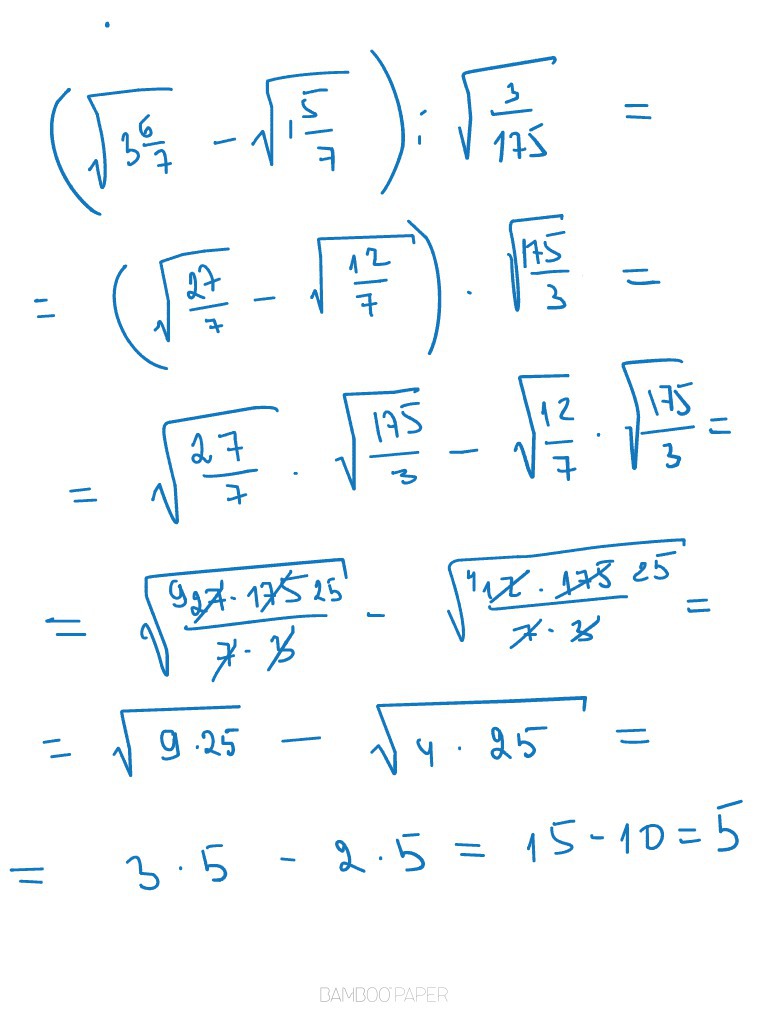 (√(3 6/7) - √(1 5/7)) : √(3/175) =
= (√(27/7) - √(12/7)) · √(175/3) =
= √(27/7) · √(175/3) - √(12/7) · √(175/3) =
= √(9 27 · 175 25 / 7 · 3) - √(4 12 · 175 25 / 7 · 3) =
= √(9 · 25) - √(4 · 25) =
= 3 · 5 - 2 · 5 = 15 - 10 = 5
BAMBOO PAPER